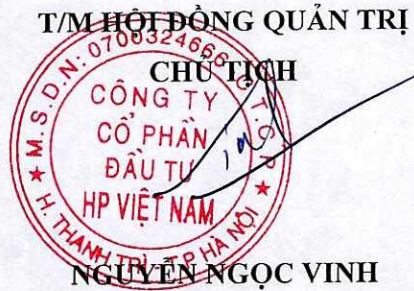 T/M HỘI ĐỒNG QUẢN TRỊ
CHỦ TỊCH
M.S.D.N: 0700324666 - C.T.C.P
CÔNG TY
CỔ PHẦN
ĐẦU TƯ
HP VIỆT NAM
H. THANH TRÌ - T.P HÀ NỘI
NGUYỄN NGỌC VINH